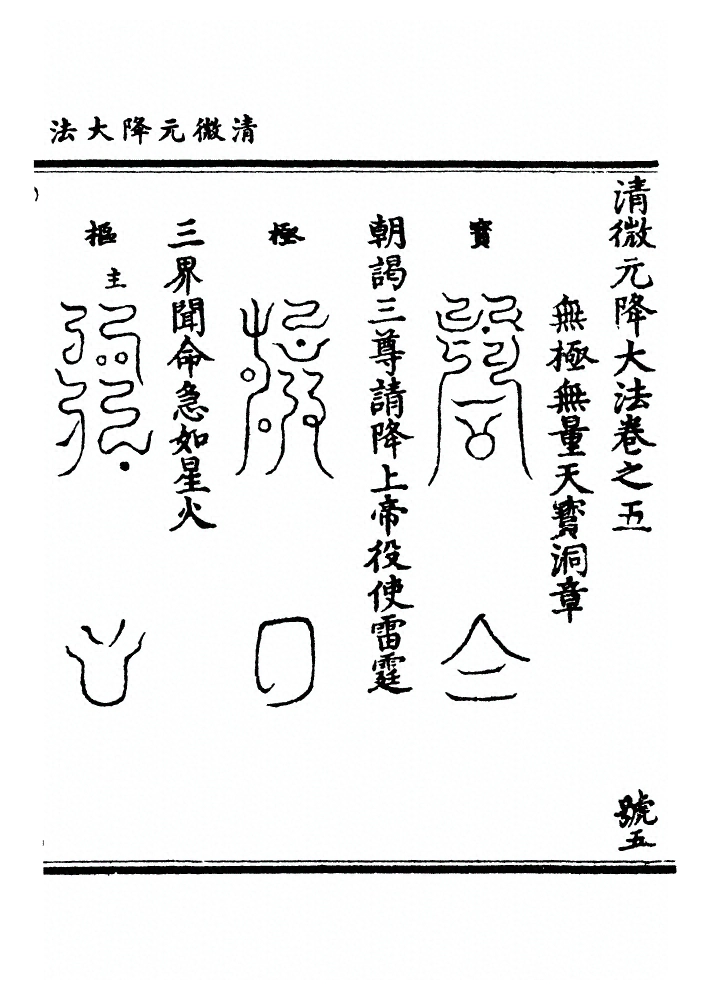 清微元降大法
清微元降大法卷之五
號五
無極無量天寶洞章
寶
朝謁三尊請降上帝役使雷霆
極
三界聞命急如星火
樞
主